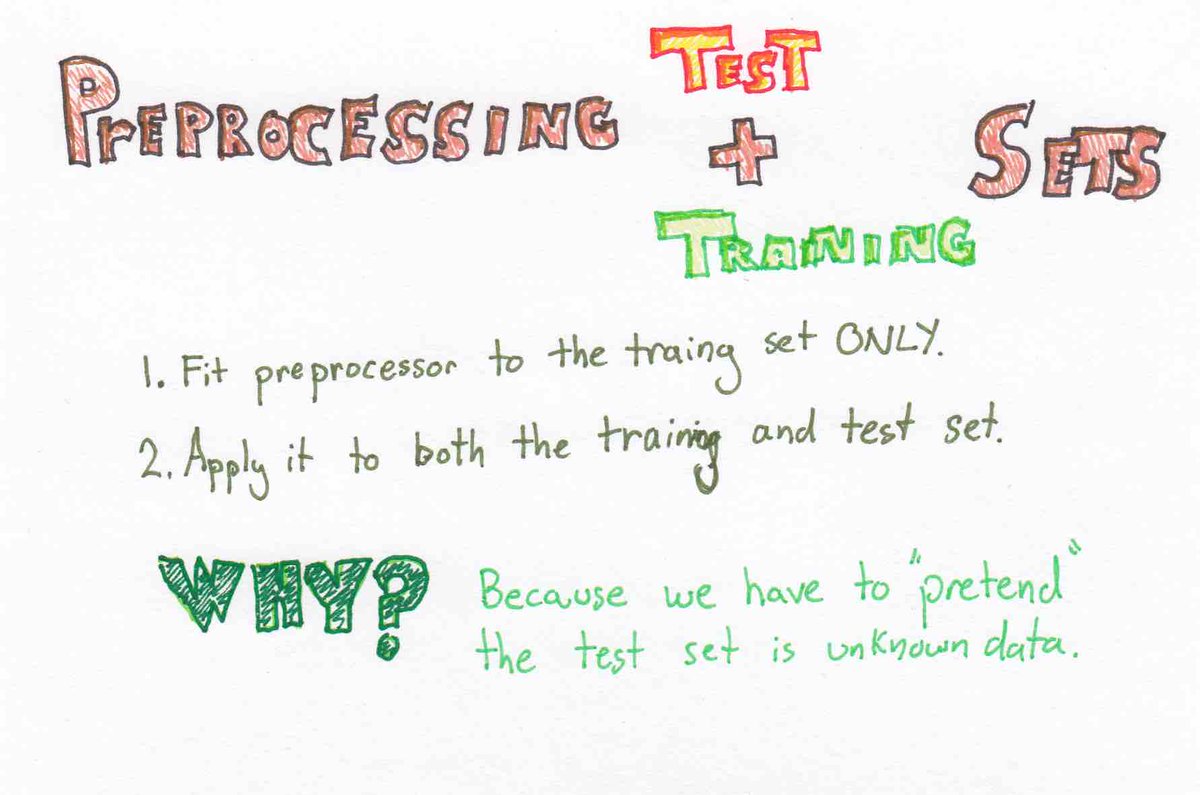 PREPROCESSING TEST + TRAINING SETS
1. Fit preprocessor to the traing set ONLY.
2. Apply it to both the training and test set.
WHY? Because we have to "pretend"
the test set is unknown data.